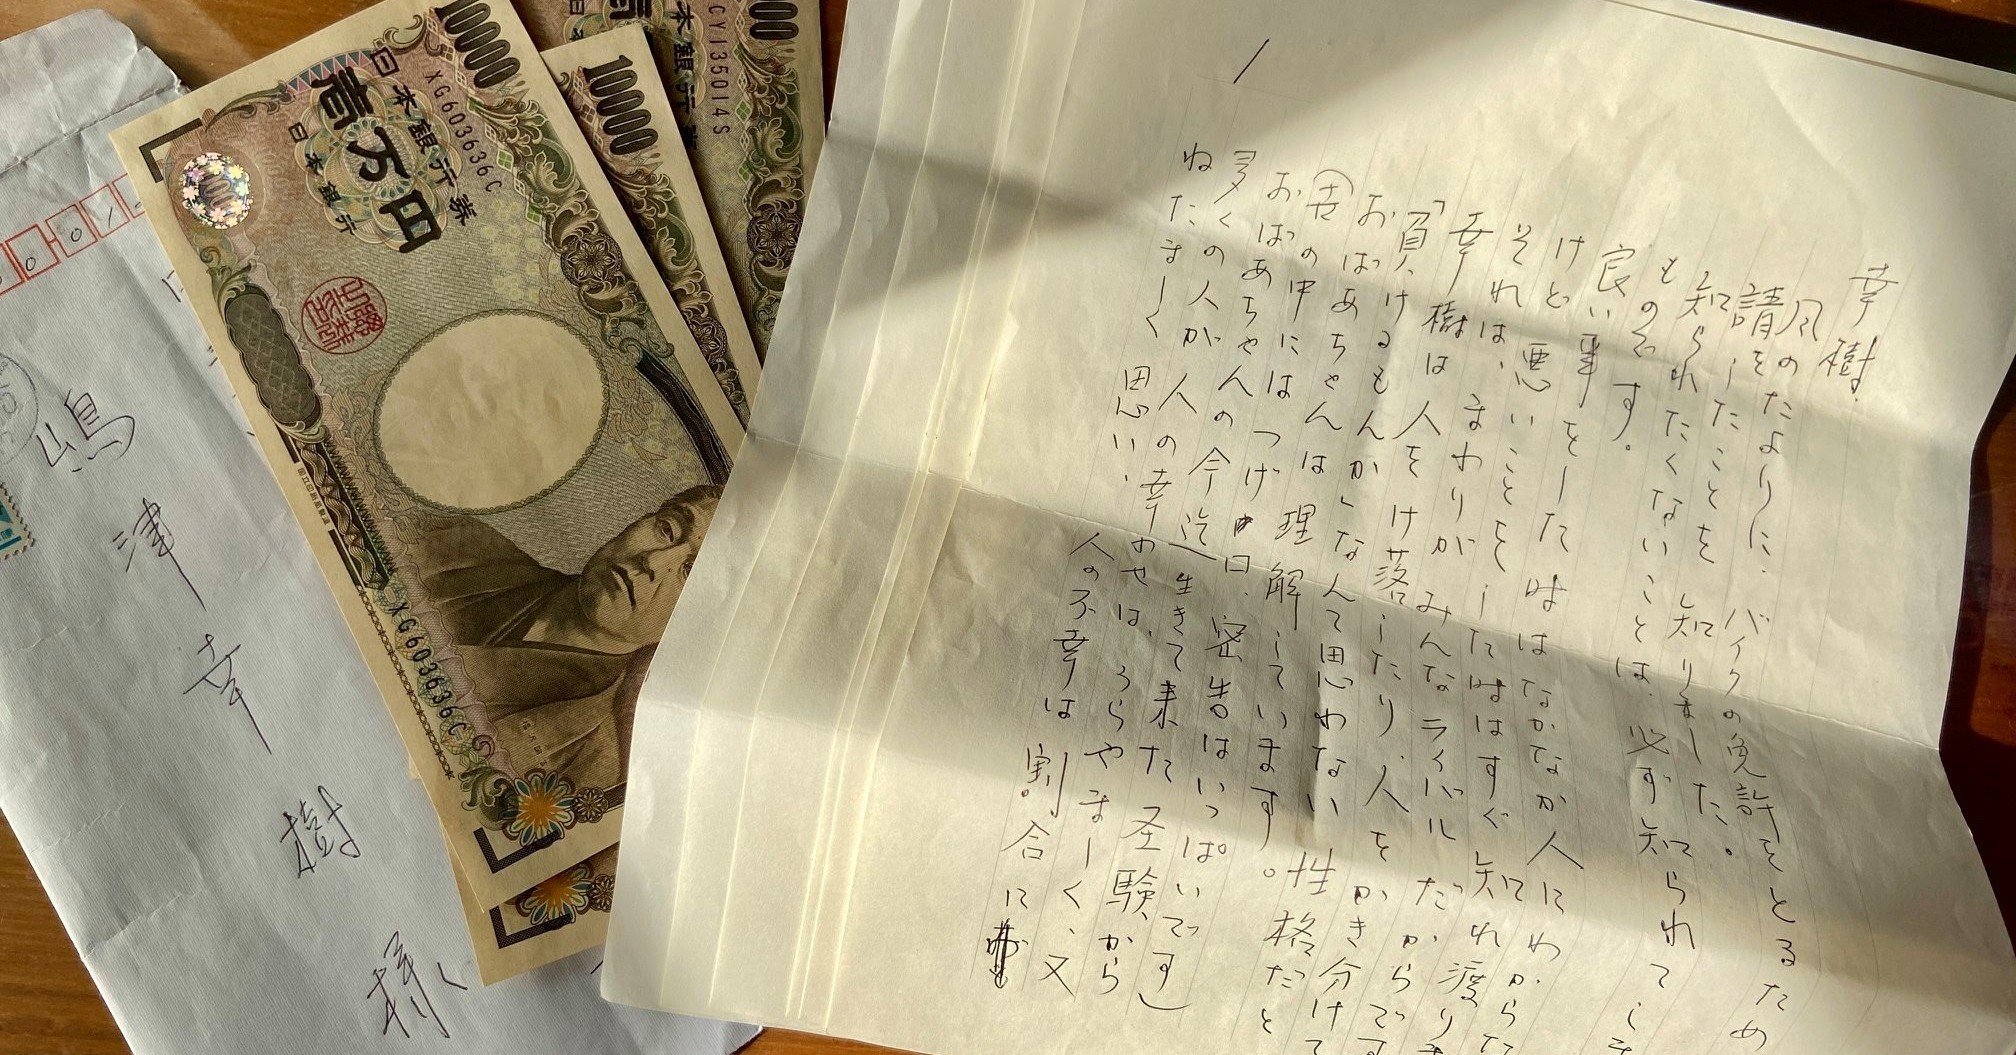 幸樹
風のたよりに、バイクの免許をとるため
請をしたことを知りました。
知られたくないことは、必ず知られてしま
ものです。
良い事をした時はなかなか人にわからな
けど悪いことをした時はすぐ知れ渡りま
それは、まわりがみんなライバルだからです
幸樹は人をけ落したり、人をかき分けて
「負けるもんか」なんて思わない性格だと
おばあちゃんは理解しています。
世の中にはつげ口、密告はいっぱいです)
おばあちゃんの今迄生きて来た圣験から
多くの人が人の幸わせは、うらやましく、又
ねたましく思い、人の不幸は割合に
嶋津幸樹様
10000
日本銀行券
XG603636C
壱万円
日本銀行
XG603636C
10000
CY135014S